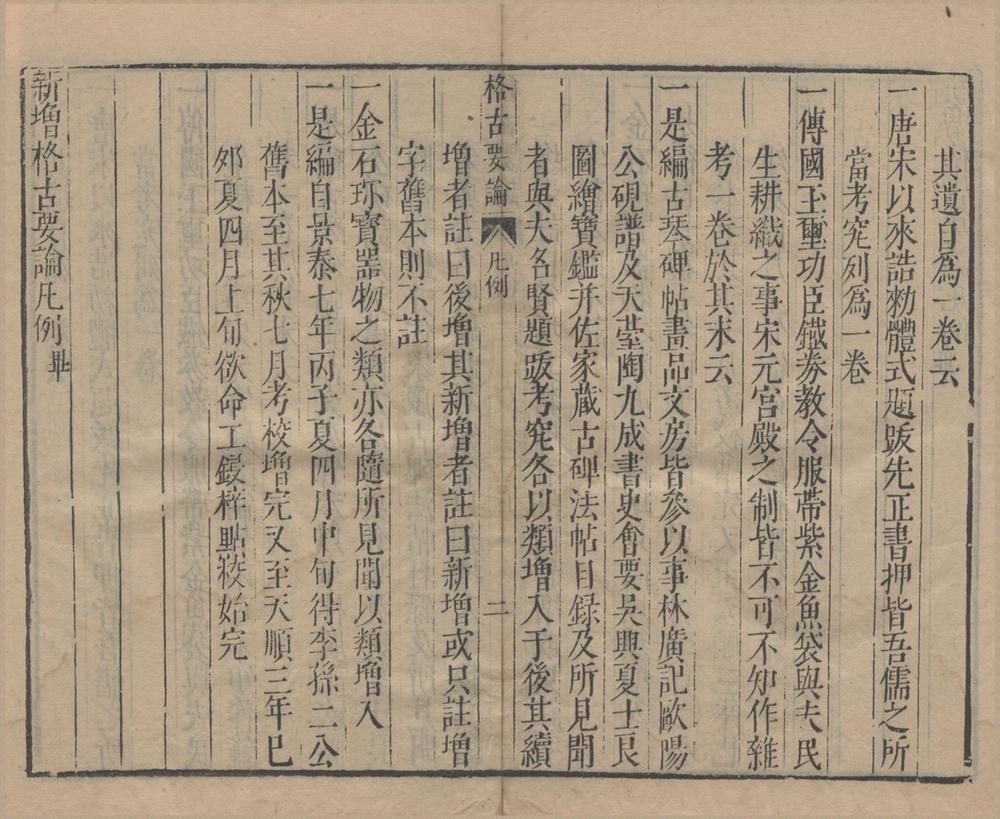 其遺自為一卷云
一唐宋以來誥勑體式題跋先正書押皆吾儒之所
當考究列爲一卷
一傳國玉璽功臣鐵券教令服帶紫金魚袋與夫民
生耕織之事宋元宮殿之制皆不可不知作雜
考一卷於其末云
一是編古琴碑帖畫品文房皆參以事林廣記歐陽
公硯譜及天臺陶九成書史會要吳興夏士良
圖繪寶鑑并佐家藏古碑法帖目録及所見聞
者與夫名賢題跋考究各以類增入于後其續
增者註曰後增其新增者註曰新增或只註增
字舊本則不註
格古要論 凡例 二
一金石珎寶器物之類亦各隨所見聞以類增入
一是編自景泰七年丙子夏四月中旬得李孫二公
舊本至其秋七月考校增完又至天順三年巳
夘夏四月上旬欲命工鋟梓點校始完
新增格古要論凡例畢